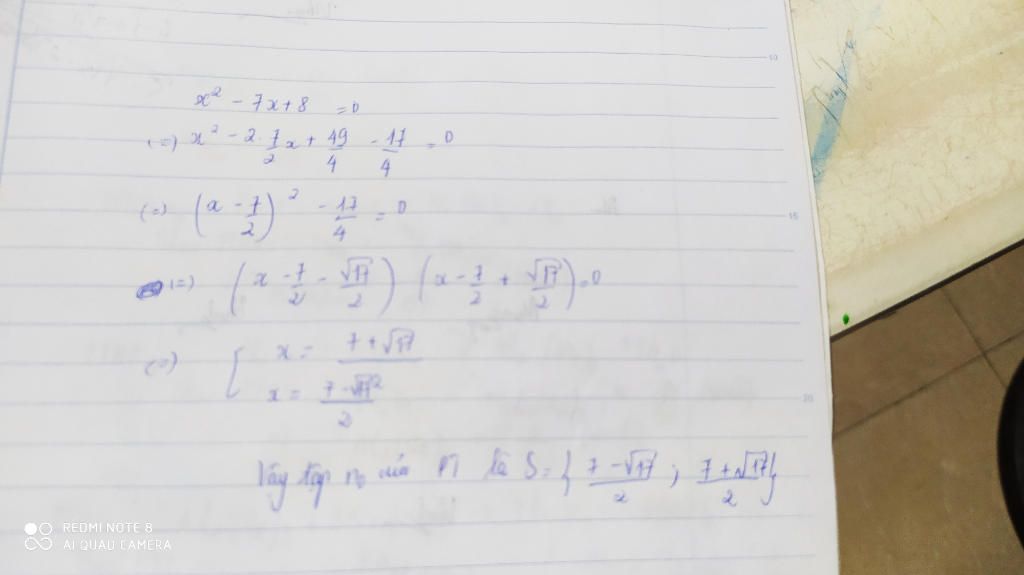 x² - 7x + 8 = 0
(=) x² - 2. 7/2 x + 49/4 - 17/4 = 0
(=) (x - 7/2)² - 17/4 = 0
(=) (x - 7/2 - √17/2) (x - 7/2 + √17/2) = 0
(=) [ x = 7 + √17 / 2
x = 7 - √17 / 2
Vậy tập n₀ của PT là S = { 7 - √17 / 2 ; 7 + √17 / 2 }
10
15
20
REDMI NOTE 8
AI QUAD CAMERA